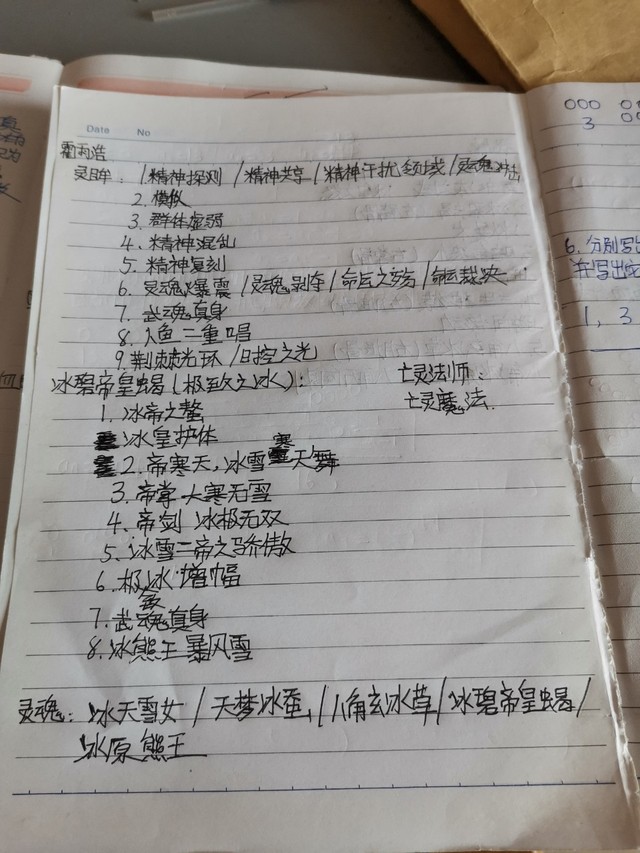 Date No
霍雨浩
灵眸：1精神探测/精神共享/精神干扰领域/灵魂冲击
2.模拟
3.群体虚弱
4.精神混乱
5.精神复刻
6.灵魂爆震/灵魂剥夺/命运之旁/命运裁决
7.武魂真身
8.人鱼二重唱
9.荆棘光环/日控之光
冰碧帝皇蝎(极致之冰)：
亡灵法师：
亡灵魔法.
1.冰帝之螯
冰皇护体
2.帝寒天,冰雪寒天舞
3.帝掌 大寒无雪
4.帝剑 冰极无双
5.冰雪二帝之骄傲
6.极冰增幅
7.武魂真身
8.冰熊王暴风雪
灵魂：冰天雪女/天梦冰蚕/八角玄冰草/冰碧帝皇蝎/
冰原熊王
3
6.分别写出
并写出
1,3